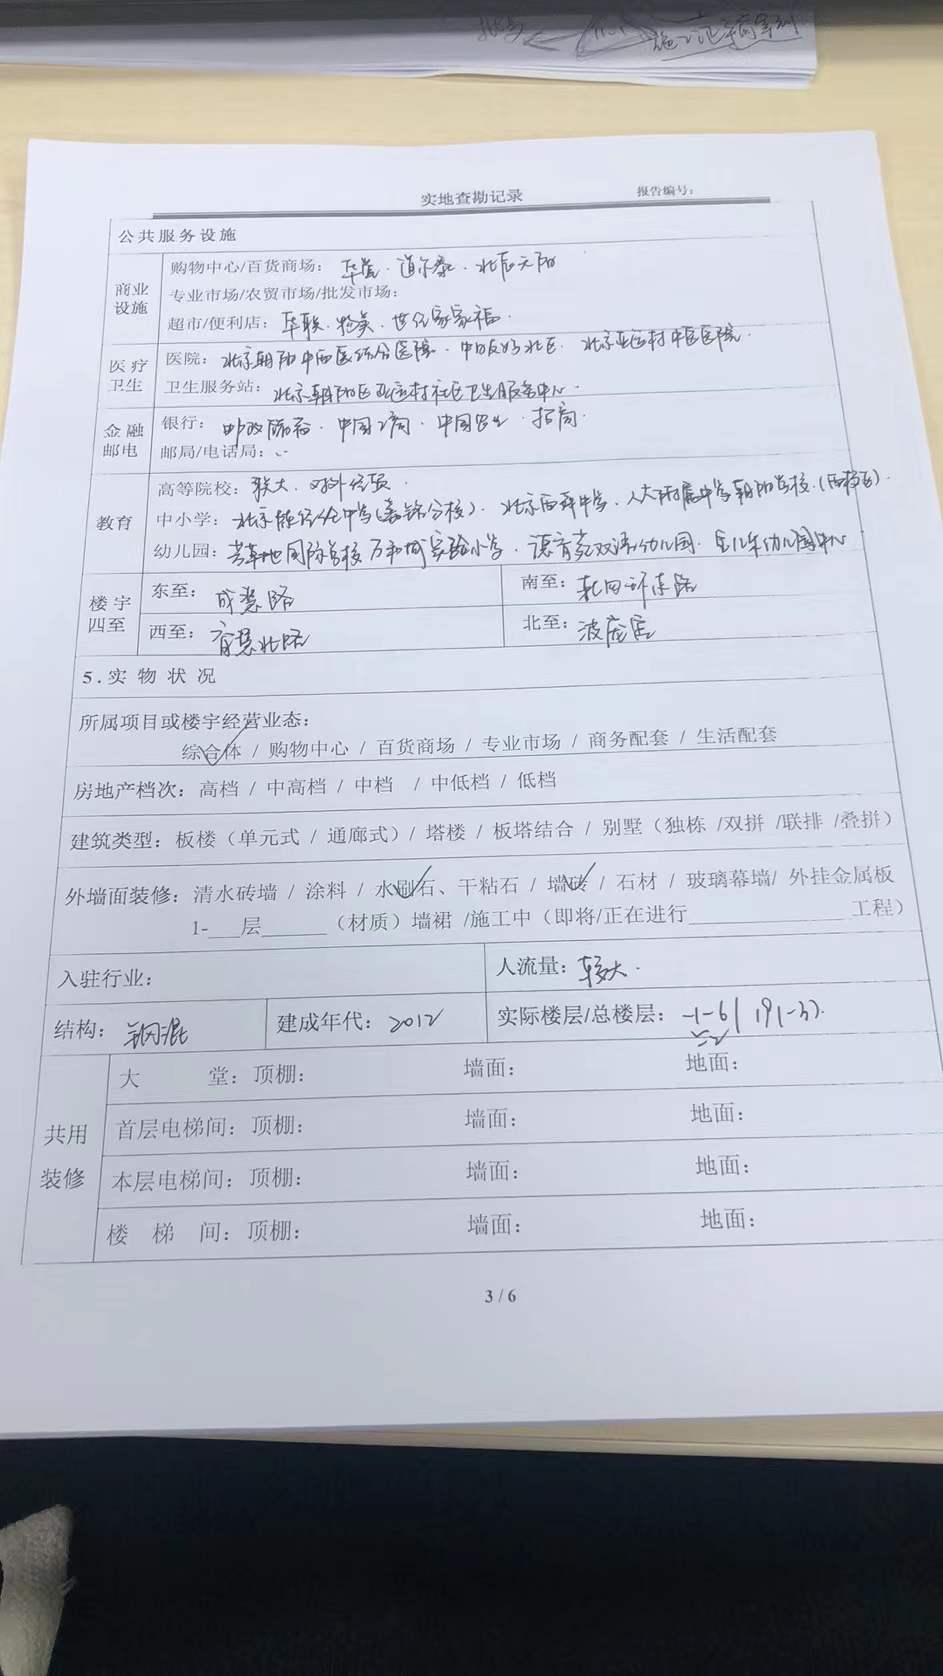 施工证
实地查勘记录 报告编号：
公共服务设施
商业设施 购物中心/百货商场： 华堂．
专业市场/农贸市场/批发市场：
超市/便利店： 华联．物美．世纪家家福．
医疗卫生 医院： 北京朝阳中西医结合医院． 中日友好北区． 北京亚运村中医医院．
卫生服务站： 北京朝阳区亚运村社区卫生服务中心．
金融邮电 银行： 邮政储蓄．中国工商．中国农业．招商．
邮局/电话局：
教育 高等院校： 联大．对外经贸．
中小学： 中学( 分校)． 中学．人大附属中学朝阳学校．(西校区)
幼儿园： 芳草地国际学校万和城实验小学． 幼儿园． 幼儿园中心
楼宇四至 东至： 成慧路 南至： 北四环东路
西至： 育慧北路 北至：
5.实物状况
所属项目或楼宇经营业态：
综合体 / 购物中心 / 百货商场 / 专业市场 / 商务配套 / 生活配套
房地产档次：高档 / 中高档 / 中档 / 中低档 / 低档
建筑类型：板楼（单元式 / 通廊式）/ 塔楼 / 板塔结合 / 别墅（独栋 /双拼 /联排 /叠拼）
外墙面装修：清水砖墙 / 涂料 / 水刷石、干粘石 / 墙砖 / 石材 / 玻璃幕墙/ 外挂金属板
1-___层______（材质）墙裙 /施工中（即将/正在进行______________ 工程）
入驻行业： 人流量：较大．
结构： 钢混 建成年代：2012 实际楼层/总楼层：-1-6/ 19(-3)．
共用装修 大 堂：顶棚： 墙面： 地面：
首层电梯间：顶棚： 墙面： 地面：
本层电梯间：顶棚： 墙面： 地面：
楼 梯 间：顶棚： 墙面： 地面：
3 / 6